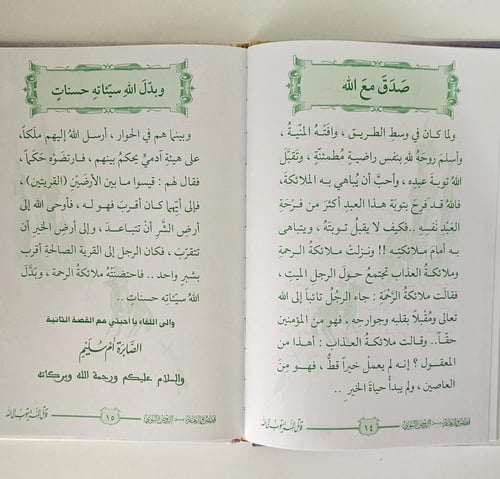 صَدَقَ مَعَ الله
ولما كان في وسط الطريق ، وافَتْهُ المنيَّة ،
وأسلمَ روحَهُ لله بنفس راضيةٍ مطمئنّةٍ ، وتَقَبَّلَ
اللهُ توبةَ عبدِه ، وأحبَّ أن يُباهي به الملائكةَ،
فاللهُ قد فَرِحَ بتوبة هذا العبدِ أكثرَ من فَرْحَةِ
العَبْدِ نَفْسِهِ ..فكيف لا يقبلُ توبتَهُ ، ويتباهى
به أمامَ ملائكتِه !! ونزلتْ ملائكةُ الرحمةِ
وملائكةُ العذاب تجتمعُ حولَ الرجلِ الميتِ ،
فقالَتْ ملائكةُ الرَّحْمَةِ : جاء الرجُلُ تائباً إلى الله
تعالى ومُقْبِلاً بقلبه وجوارحه ، فهو من المؤمنين
حقّاً.. وقالت ملائكةُ العذاب : أهذا من
المعقول ؟ إنه لم يعملْ خيراً قطُّ ، فهو مِنَ
العاصين ، ولم يبدأْ حياةَ الخيرِ ..
١٤
وبدَّلَ اللهُ سيِّئاتِهِ حسناتٍ
وبينما هم في الحوار ، أرسل اللهُ إليهم ملَكاً،
على هيئةِ آدميٍّ يحكمُ بينهم ، فارتضَوْه حَكَماً،
فقال لهم : قيسوا ما بين الأرضَيْنِ (القريتين) ،
فإلى أيِّهما كان أقربَ فهو له ، فأوحى اللهُ إلى
أرضِ الشَّرِّ أنْ تتباعدَ ، وإلى أرضِ الخيرِ أن
تتقرّبَ ، فكان الرجل إلى القرية الصالحةِ أقربَ
بشبرٍ واحد .. فاحتضنَتْهُ ملائكةُ الرحمة ، وبَدَّلَ
اللهُ سيّئاتِه حسناتٍ ..
والى اللقاء يا أحبتي مع القصة الثانية
الصَّابِرَة أُمّ سُلَيْم
والسلام عليكم ورحمة الله وبركاته
١٥